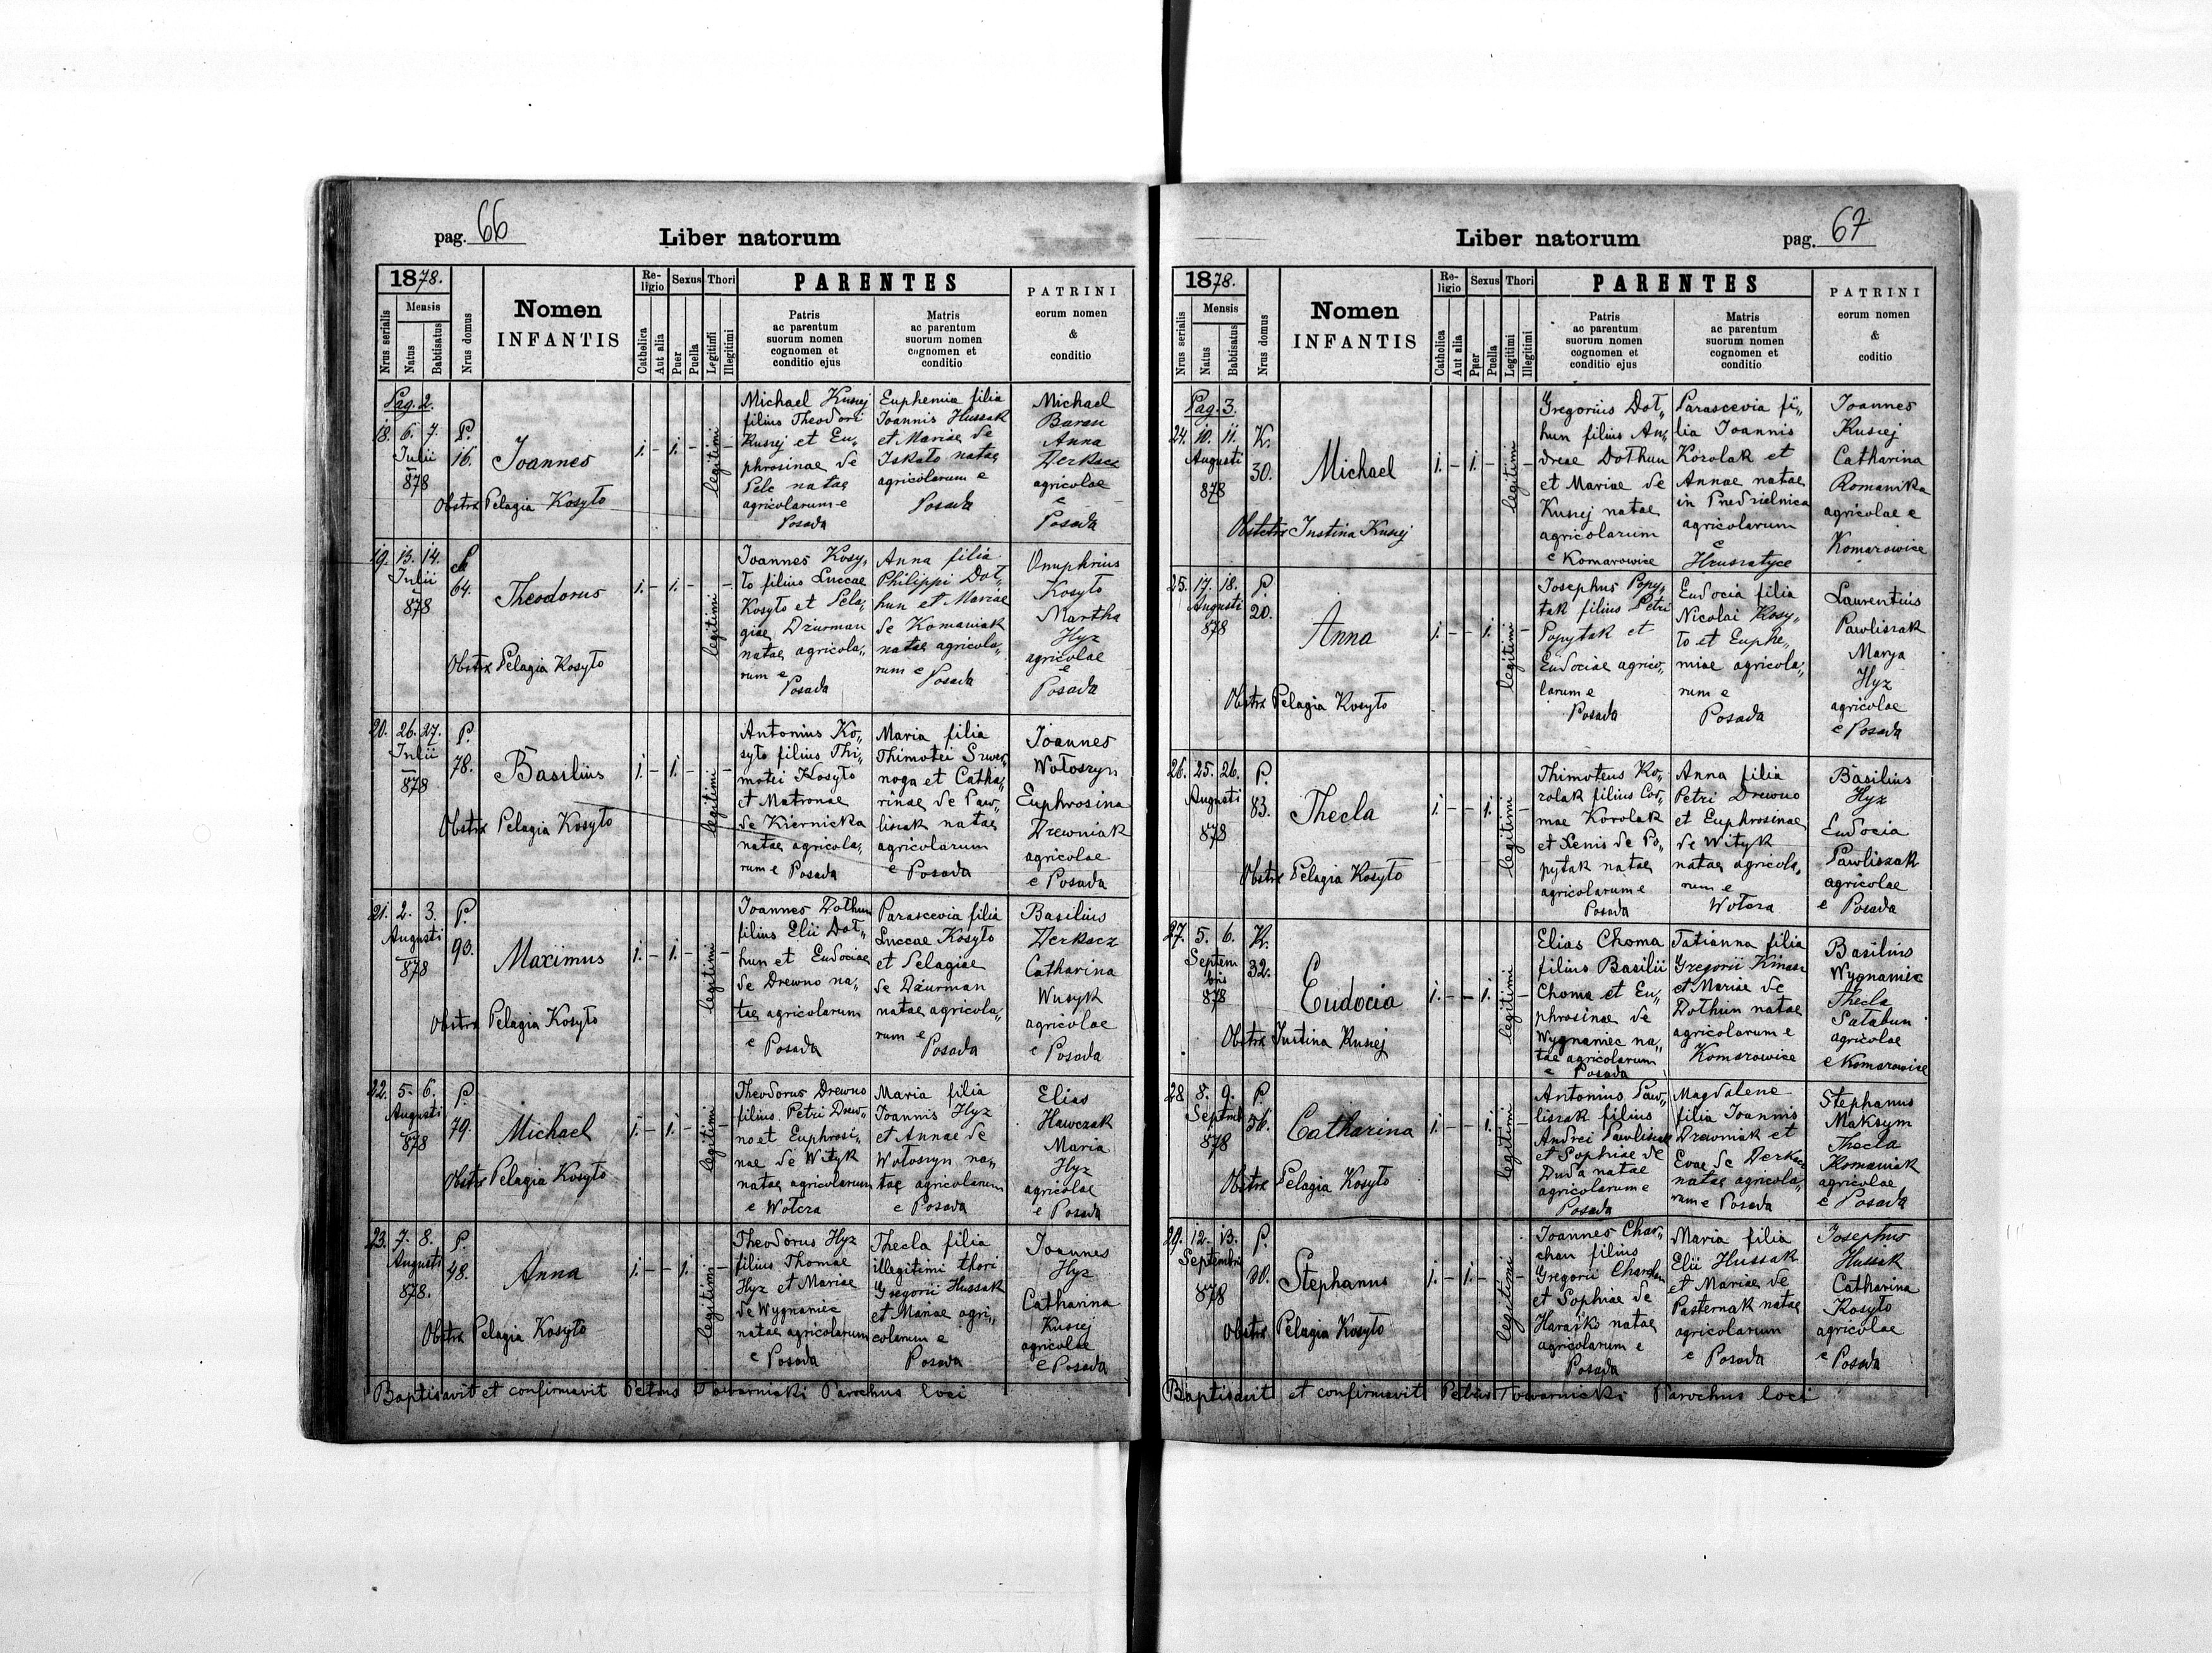 pag. 66
Liber natorum
1878.
Mensis
Nrus serialis
Natus
Babtisatus
Nrus domus
Nomen
INFANTIS
Re-
ligio
Catholica
Aut alia
Sexus
Puer
Puella
Thori
Legitimi
Illegitimi
PARENTES
Patris
ac parentum
suorum nomen
cognomen et
conditio ejus
Matris
ac parentum
suorum nomen
cognomen et
conditio
PATRINI
eorum nomen
&
conditio
Pag. 2.
18. 6. 7.
Julii
878
P.
16.
Joannes
1. - 1. -
legitimi
Obstrx Pelagia Kosyło
Michael Kusiej
filius Theodori
Kusiej et Eu„
phrosinae de
Pelc natae
agricolarum e
Posada
Euphemia filia
Joannis Hussak
et Mariae de
natae
agricolarum e
Posada
Michael
Baran
Anna
Derkacz
agricolae
e
Posada
19. 13. 14.
Julii
878
64.
Theodorus
1. - 1. - -
legitimi
Obstrx Pelagia Kosyło
Joannes Kosy„
ło filius Luccae
Kosyło et Pela„
giae Dziurman
natae agricola„
rum e
Posada
Anna filia
Philippi Doł„
hun et Mariae
de Romaniak
natae agricola„
rum e Posada
Onuphrius
Kosyło
Martha
Hyz
agricolae
e
Posada
20. 26. 27.
Julii
878
P.
78.
Basilius
1. - 1. - -
legitimi
Obstrx Pelagia Kosyło
Antonius Ko„
syło filius Thi„
motei Kosyło
et Matronae
de Kiernicka
natae agricola„
rum e Posada
Maria filia
Thimotei
noga et Catha„
rinae de Paw„
lisiak natae
agricolarum
e Posada
Joannes
Wołoszyn
Euphrosina
Drewniak
agricolae
e Posada
21. 2. 3.
Augusti
878
P.
93.
Maximus
1. - 1. - -
legitimi
Obstrx Pelagia Kosyło
Joannes Dołhun
filius Elii Doł„
hun et Eudociae
de Drewno na„
tae agricolarum
e Posada
Parascevia filia
Luccae Kosyło
et Pelagiae
de Dziurman
natae agricola„
rum e
Posada
Basilius
Derkacz
Catharina
Wusyk
agricolae
e Posada
22. 5. 6.
Augusti
878
P.
79.
Michael
1. - 1. - -
legitimi
Obstrx Pelagia Kosyło
Theodorus Drewno
filius Petri Drew„
no et Euphrosi„
nae de Wityk
natae agricolarum
e Wołcza
Maria filia
Joannis Hyz
et Annae de
Wołoszyn na„
tae agricolarum
e Posada
Elias
Hawczak
Maria
Hyz
agricolae
e Posada
23. 7. 8.
Augusti
878.
P.
48.
Anna
1. - - 1. -
legitimi
Obstrx Pelagia Kosyło
Theodorus Hyz
filius Thomae
Hyz et Mariae
de Wygnaniec
natae agricolarum
e Posada
Thecla filia
illegitimi thori
Gregorii Hussak
et Mariae agri„
colarum e
Posada
Joannes
Hyz
Catharina
Kusiej
agricolae
e Posada
Baptisavit et confirmavit Petrus Towarnicki Parochus loci
Liber natorum
pag. 67
1878.
Mensis
Nrus serialis
Natus
Babtisatus
Nrus domus
Nomen
INFANTIS
Re-
ligio
Catholica
Aut alia
Sexus
Puer
Puella
Thori
Legitimi
Illegitimi
PARENTES
Patris
ac parentum
suorum nomen
cognomen et
conditio ejus
Matris
ac parentum
suorum nomen
cognomen et
conditio
PATRINI
eorum nomen
&
coditio
Pag. 3.
24. 10. 11.
Augusti
878
K.
30.
Michael
1. - 1. -
legitimi
Obstetrix Justina Kusiej
Gregorius Doł„
hun filius An„
dreae Dołhun
et Mariae de
Kusiej natae
agricolarum
e Komarowice
Parascevia fi„
lia Joannis
Korolak et
Annae natae
in Predzielnica
agricolarum
e
Hruszatyce
Joannes
Kusiej
Catharina
Romanika
agricolae e
Komarowice
25. 17. 18.
Augusti
878
P.
20.
Anna
1. - - 1. -
legitimi
Obstrx Pelagia Kosyło
Josephus Popy„
tak filius Petri
Popytak et
Eudociae agrico„
larum e
Posada
Eudocia filia
Nicolai Kosy„
ło et Euphe„
miae agricola„
rum e
Posada
Laurentius
Pawliszak
Marya
Hyz
agricolae
e Posada
26. 25. 26.
Augusti
878
P.
83.
Thecla
1. - - 1. -
legitimi
Obstrx Pelagia Kosyło
Thimoteus Ko„
rolak filius Cos„
mae Korolak
et Xenis de Po„
pytak natae
agricolarum e
Posada
Anna filia
Petri Drewno
et Euphrosinae
de Wityk
natae agricola„
rum e
Wołcza
Basilius
Hyz
Eudocia
Pawliszak
agricolae
e Posada
27. 5. 6.
Septem
bris
878
K.
32.
Eudocia
1. - - 1. -
legitimi
Obstrx Justina Kusiej
Elias Choma
filius Basilii
Choma et Eu„
phrosinae de
Wygnaniec na„
tae agricolarum
e Posada
Tatianna filia
Gregorii
et Mariae de
Dołhun natae
agricolarum e
Komarowice
Basilius
Wygnaniec
Thecla
Sałabun
agricolae
e Komarowice
28 8. 9.
Septmb
878
P.
56.
Catharina
1. - - 1. -
legitimi
Obstrx Pelagia Kosyło
Antonius Paw„
liszak filius
Andrei Pawliszak
et Sophiae de
Duda natae
agricolarum e
Posada
Magdalene
filia Joannis
Drewniak et
Evae de Derkacz
natae agricola„
rum e Posada
Stephanus
Maksym
Thecla
Romaniak
agricolae
e Posada
29. 12. 13.
Septembris
878
P.
30.
Stephanus
1. - 1. - -
legitimi
Obstrx Pelagia Kosyło
Joannes Char„
chan filius
Gregorii Charchan
et Sophiae de
Haraśko natae
agricolarum e
Posada
Maria filia
Elii Hussak
et Mariae de
Pasternak natae
agricolarum
e Posada
Josephus
Hussak
Catharina
Kosyło
agricolae
e Posada
Baptisavit et confirmavit Petrus Towarnicki Parochus loci